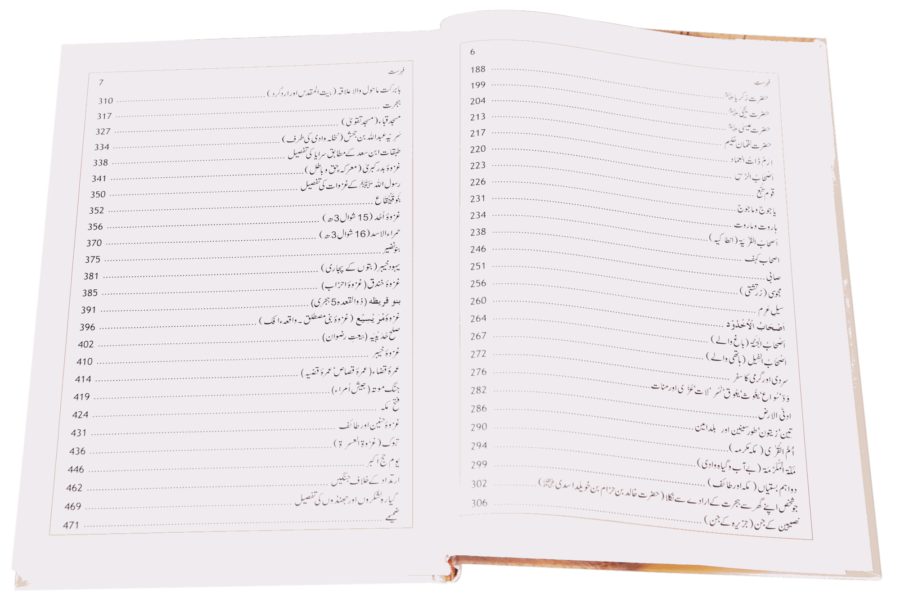 6
فہرست
حضرت زکریا ﷤ 188
حضرت یحییٰ ﷤ 199
حضرت عیسیٰ ﷤ 204
حضرت لقمان حکیم 213
اِرم ذات العماد 217
اصحاب الرّس 220
قوم تبع 223
یاجوج وماجوج 226
ہاروت وماروت 231
اصحاب القریۃ (انطاکیہ) 234
اصحاب کہف 238
صابی 246
مجوسی (زرتشتی) 251
سیل عرم 256
اصحاب الاُخدُود 260
اصحاب الجنّۃ (باغ والے) 264
اصحاب الفیل (ہاتھی والے) 267
سردی اور گرمی کا سفر 272
وَدّ' سُواع' یغوث' یعوق' نسر' لات' عُزّیٰ اور منات 276
ادنی الارض 282
تین' زیتون' طور سینین اور بلد امین 286
اُمّ القُریٰ (مکہ مکرمہ) 290
مکۃ المکرمۃ (بے آب و گیاہ وادی) 294
دو اہم بستیاں (مکہ اور طائف) 299
جو شخص اپنے گھر سے ہجرت کے ارادے سے نکلا (حضرت خالد بن حزام بن خویلد اسدی ﷜) 302
نصیبین کے جن (جزیرہ کے جن) 306
7
فہرست
بابرکت ماحول والا علاقہ (بیت المقدس اور ارد گرد) 310
ہجرت 317
مسجد قباء (مسجد تقویٰ) 327
سریہ عبداللہ بن جحش (نخلہ وادی کی طرف) 334
طبقات ابن سعد کے مطابق سرایا کی تفصیل 338
غزوۂ بدر کبریٰ (معرکہ حق و باطل) 341
رسول اللہ ﷺ کے غزوات کی تفصیل 350
بنو قینقاع 352
غزوۂ اُحد (15 شوال 3ھ) 356
حمراء الاسد (16 شوال 3ھ) 370
بنو نضیر 375
یہود خیبر (بتوں کے پجاری) 381
غزوۂ خندق (غزوۂ احزاب) 385
بنو قریظہ (ذوالقعدہ 5 ہجری) 391
غزوۂ مُریسیع (غزوۂ بنی مصطلق ۔ واقعہ افک) 396
صلح حدیبیہ (بیعت رضوان) 402
غزوۂ خیبر 410
عمرۂ قضاء (عمرۂ قصاص' عمرۂ قضیہ) 414
جنگ موتہ (جیش اُمراء) 419
فتح مکہ 424
غزوۂ حنین اور طائف 431
تبوک (غزوۃ العسرۃ) 436
یوم حج اکبر 446
ارتداد کے خلاف جنگیں 462
گیارہ لشکروں اور جھنڈوں کی تفصیل 469
ضمیمے 471